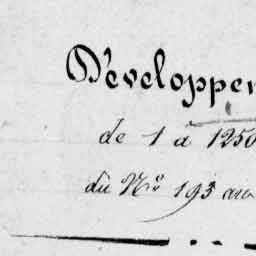 Développe
de 1 à 1250
du Nº 193 au